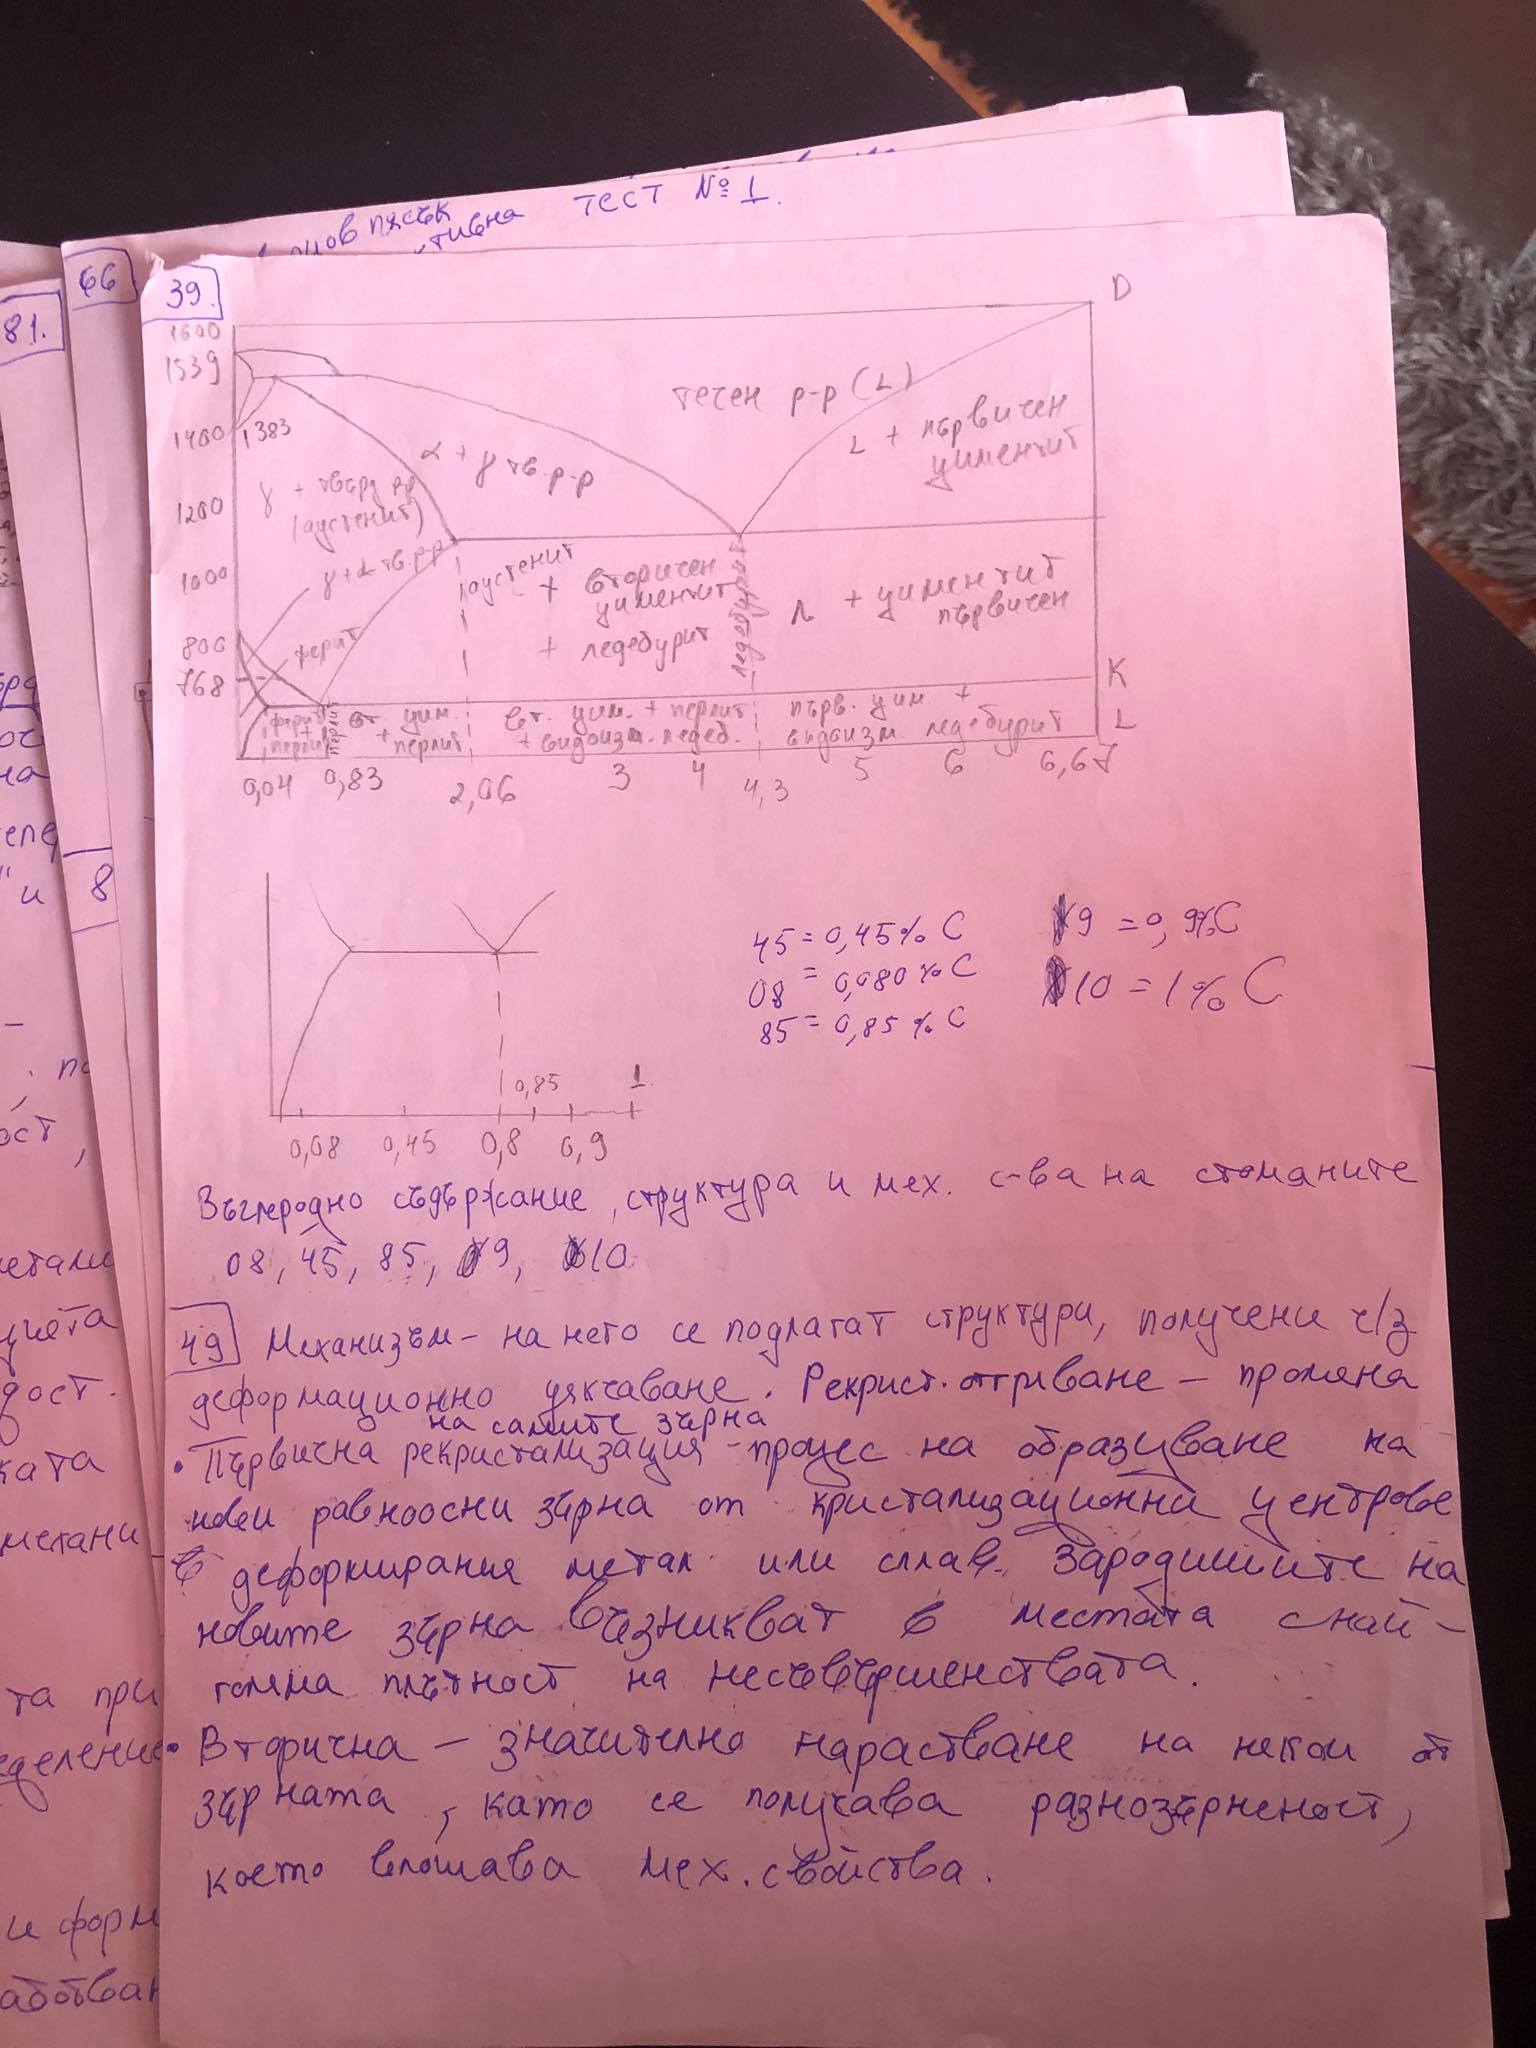 ТЕСТ № 1.
66
81.
8
39.
D
1600
1539
1400
1383
течен р-р (L)
L + първичен
циментит
α + γ тв. р-р
γ + твърд р-р
(аустенит)
1200
γ+α тв. р-р
1000
аустенит
+ вторичен
циментит
+ ледебурит
ледебурит
Л + циментит
първичен
800
ферит
768
K
L
ферит
+
перлит
перлит
вт. цим.
+ перлит
вт. цим. + перлит
+ видоизм. ледеб.
първ. цим. +
видоизм. ледебурит
0,04 0,83 2,06 3 4 4,3 5 6 6,67
45 = 0,45% C
08 = 0,080% C
85 = 0,85% C
9 = 0,9% C
10 = 1% C
0,85 1
0,08 0,45 0,8 0,9
Въглеродно съдържание, структура и мех. с-ва на стоманите
08, 45, 85, 9, 10
49 Механизъм - на него се подлагат структури, получени ч/з
деформационно уякчаване. Рекрист. отгряване - промяна
на самите зърна
• Първична рекристализация - процес на образуване на
нови равноосни зърна от кристализационни центрове
в деформирания метал или сплав. Зародишите на
новите зърна възникват в местата с най-
голяма плътност на несъвършенствата.
• Вторична - значително нарастване на някои от
зърната, като се получава разнозърненост,
което влошава мех. свойства.